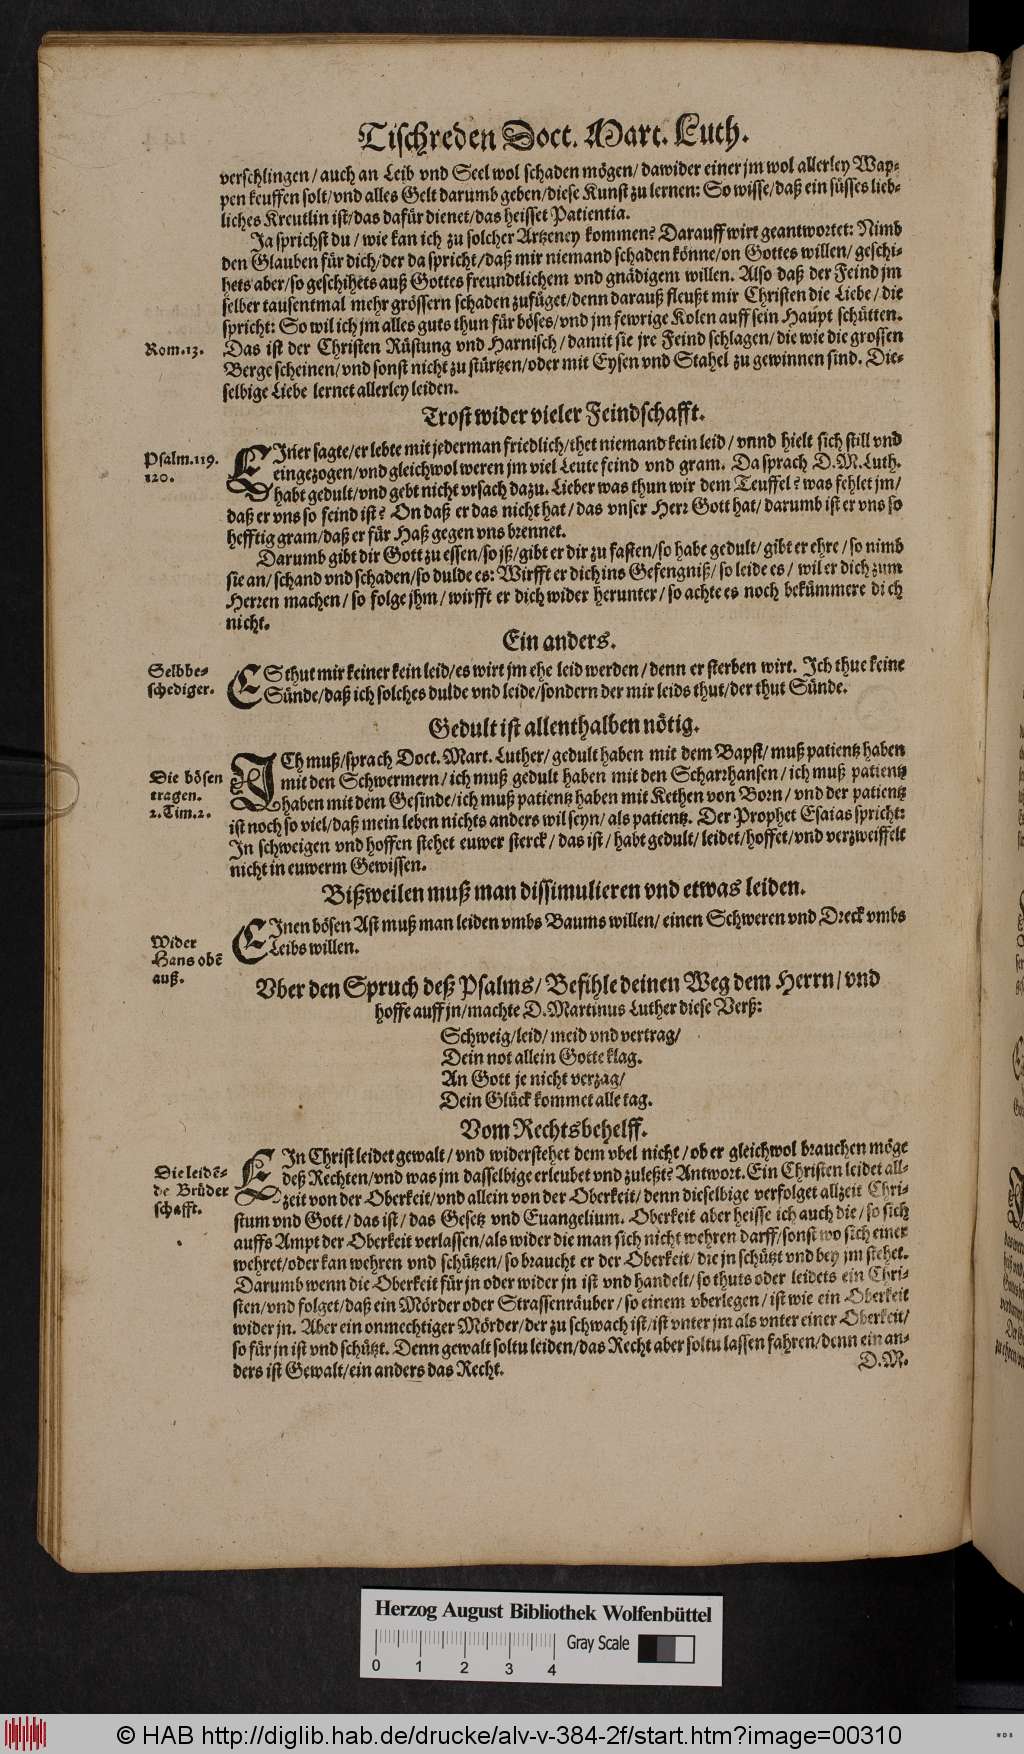 Tischreden Doct. Mart. Luth.
verschlingen / auch an Leib vnd Seel wol schaden mögen / dawider einer jm wol allerley Wap-
pen keuffen solt / vnd alles Gelt darumb geben / diese Kunst zu lernen: So wisse / daß ein süsses lieb-
liches Kreutlin ist / das dafür dienet / das heisset Patientia.
Ja sprichst du / wie kan ich zu solcher Artzeney kommen? Darauff wirt geantwortet: Nimb
den Glauben für dich / der da spricht / daß mir niemand schaden könne / on Gottes willen / geschi-
hets aber / so geschihets auß Gottes freundtlichem vnd gnädigem willen. Also daß der Feind jm
selber tausentmal mehr grössern schaden zufüget / denn darauß fleußt mir Christen die Liebe / die
spricht: So wil ich jm alles guts thun für böses / vnd jm fewrige Kolen auff sein Haupt schütten.
Rom. 13.
Das ist der Christen Rüstung vnd Harnisch / damit sie jre Feind schlagen / die wie die grossen
Berge scheinen / vnd sonst nicht zu stürtzen / oder mit Eysen vnd Stahel zu gewinnen sind. Die-
selbige Liebe lernet allerley leiden.
Trost wider vieler Feindschafft.
Psalm. 119.
120.
EIner sagte / er lebte mit jederman friedlich / thet niemand kein leid / vnnd hielt sich still vnd
eingezogen / vnd gleichwol weren jm viel Leute feind vnd gram. Da sprach D. M. Luth.
habt gedult / vnd gebt nicht vrsach dazu. Lieber was thun wir dem Teuffel? was fehlet jm /
daß er vns so feind ist? On daß er das nicht hat / das vnser Herr Gott hat / darumb ist er vns so
hefftig gram / daß er für Haß gegen vns brennet.
Darumb gibt dir Gott zu essen / so jß / gibt er dir zu fasten / so habe gedult / gibt er ehre / so nimb
sie an / schand vnd schaden / so dulde es: Wirfft er dich ins Gefengniß / so leide es / wil er dich zum
Herren machen / so folge jhm / wirfft er dich wider herunter / so achte es noch bekümmere dich
nicht.
Ein anders.
Selbbe-
schediger.
ES thut mir keiner kein leid / es wirt jm ehe leid werden / denn er sterben wirt. Ich thue keine
Sünde / daß ich solches dulde vnd leide / sondern der mir leids thut / der thut Sünde.
Gedult ist allenthalben nötig.
Die bösen
tragen.
2. Tim. 2.
ICh muß / sprach Doct. Mart. Luther / gedult haben mit dem Bapst / muß patientz haben
mit den Schwermern / ich muß gedult haben mit den Scharrhansen / ich muß patientz
haben mit dem Gesinde / ich muß patientz haben mit Kethen von Born / vnd der patientz
ist noch so viel / daß mein leben nichts anders wil seyn / als patientz. Der Prophet Esaias spricht:
In schweigen vnd hoffen stehet euwer sterck / das ist / habt gedult / leidet / hoffet / vnd verzweiffelt
nicht in euwerm Gewissen.
Bißweilen muß man dissimulieren vnd etwas leiden.
Wider
Hans obẽ
auß.
EInen bösen Ast muß man leiden vmbs Baums willen / einen Schweren vnd Dreck vmbs
Leibs willen.
Vber den Spruch deß Psalms / Befihle deinen Weg dem Herrn / vnd
hoffe auff jn / machte D. Martinus Luther diese Verß:
Schweig / leid / meid vnd vertrag /
Dein not allein Gotte klag.
An Gott je nicht verzag /
Dein Glück kommet alle tag.
Vom Rechtsbehelff.
Die leidẽ-
de Brüder
schafft.
EIn Christ leidet gewalt / vnd widerstehet dem vbel nicht / ob er gleichwol brauchen möge
deß Rechten / vnd was jm dasselbige erleubet vnd zuleßt? Antwort. Ein Christen leidet all-
zeit von der Oberkeit / vnd allein von der Oberkeit / denn dieselbige verfolget allzeit Chri-
stum vnd Gott / das ist / das Gesetz vnd Euangelium. Oberkeit aber heisse ich auch die / so sich
auffs Ampt der Oberkeit verlassen / als wider die man sich nicht wehren darff / sonst wo sich einer
wehret / oder kan wehren vnd schützen / so braucht er der Oberkeit / die jn schützt vnd bey jm stehet.
Darumb wenn die Oberkeit für jn oder wider jn ist vnd handelt / so thuts oder leidets ein Chri-
sten / vnd folget / daß ein Mörder oder Strassenräuber / so einem vberlegen / ist wie ein Oberkeit
wider jn. Aber ein onmechtiger Mörder / der zu schwach ist / ist vnter jm als vnter einer Oberkeit /
so für jn ist vnd schützt. Denn gewalt soltu leiden / das Recht aber soltu lassen fahren / denn ein an-
ders ist Gewalt / ein anders das Recht.
D. M.
Herzog August Bibliothek Wolfenbüttel
Gray Scale
0 1 2 3 4
© HAB http://diglib.hab.de/drucke/alv-v-384-2f/start.htm?image=00310